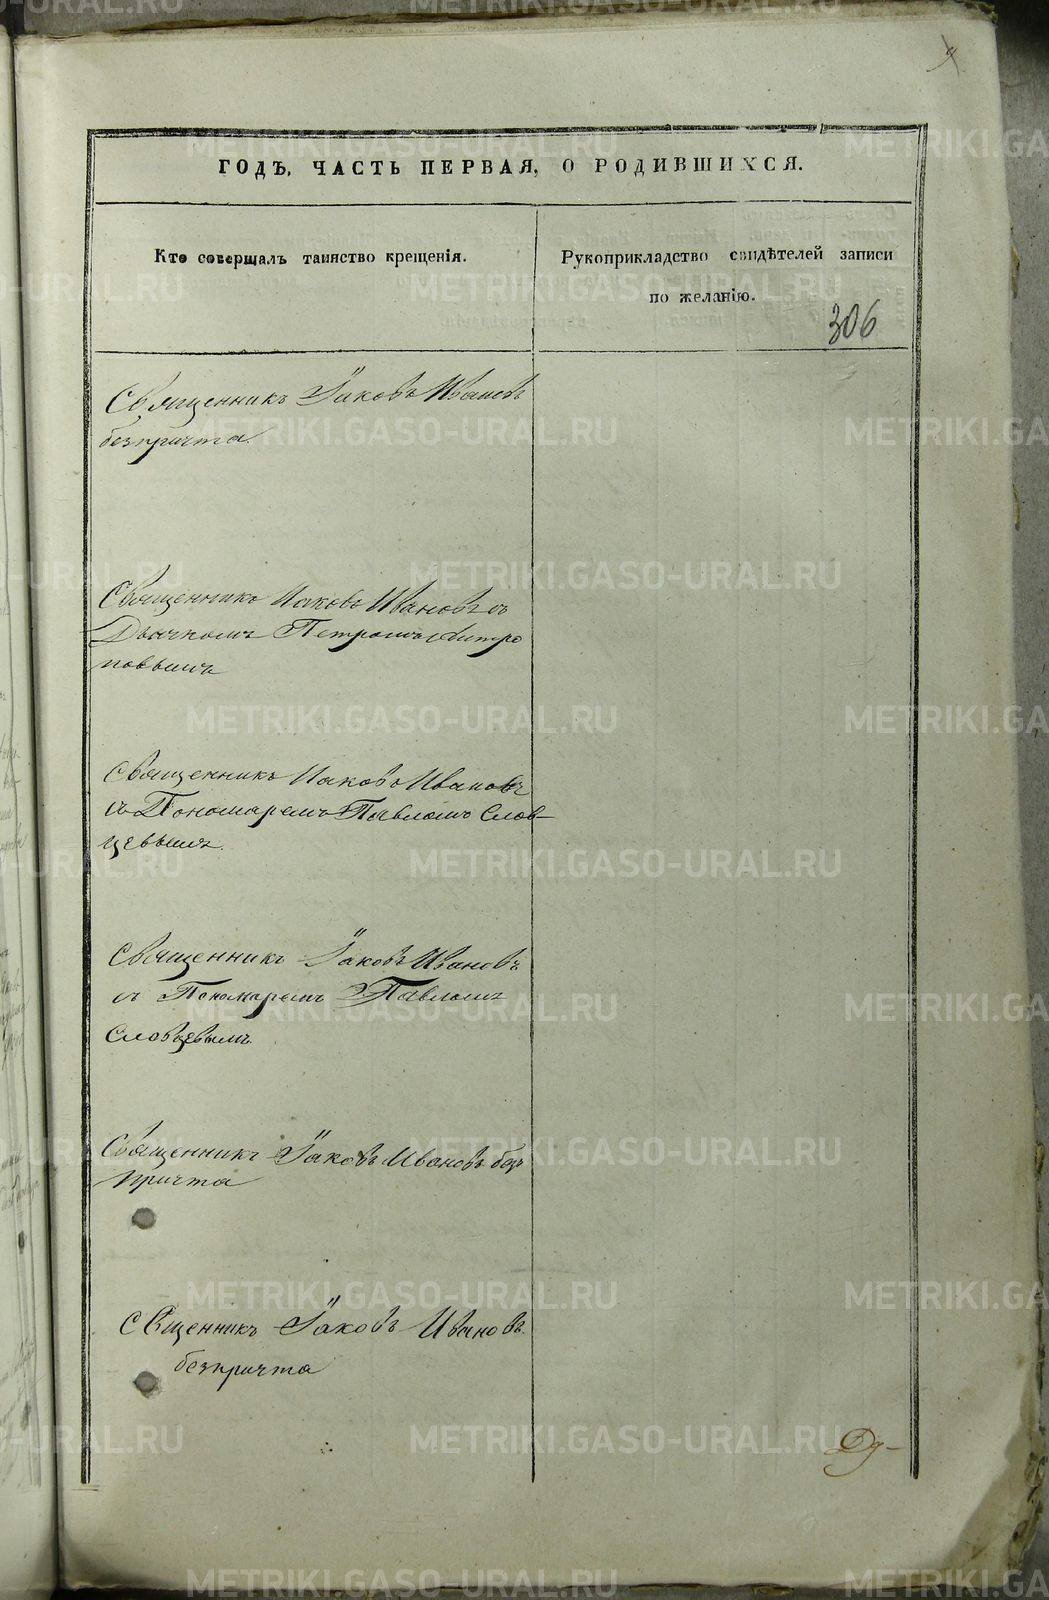 9
ГОДЪ, ЧАСТЬ ПЕРВАЯ, О РОДИВШИХСЯ.
Кто совершалъ таинство крещенія.
Рукоприкладство свидѣтелей записи
по желанію.
306
Священникъ Іаковъ Ивановъ
безпричта.
Священникъ Иаковъ Ивановъ съ
Дьячкомъ Петромъ Митро
повымъ
Священникъ Иаковъ Ивановъ
съ Пономаремъ Павломъ Слов-
цевымъ.
Священникъ Іаковъ Ивановъ
съ Пономаремъ Павломъ
Словцевымъ.
Священникъ Іаковъ Ивановъ без
причта
Свщенникъ Іаковъ Ивановъ.
безпричта
METRIKI.GASO-URAL.RU